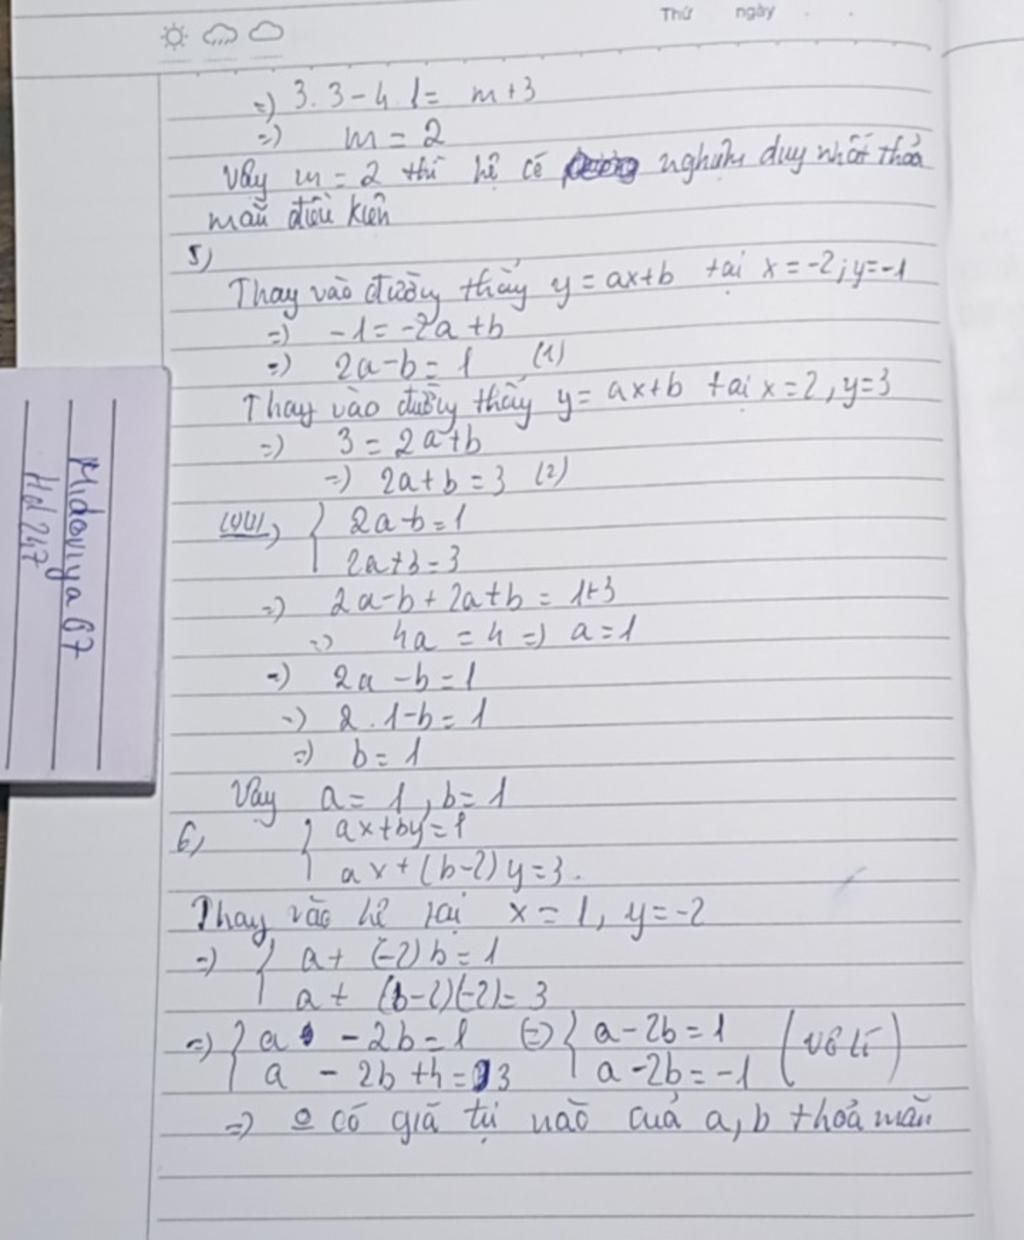 Thứ ngày
=) 3.3-4.1= m+3
=) m=2
Vậy m=2 thì hệ có nghiệm duy nhất thỏa
mãn điều kiện
5)
Thay vào đường thẳng y=ax+b tại x=-2;y=-1
=) -1=-2a+b
=) 2a-b=1 (1)
Thay vào đường thẳng y=ax+b tại x=2,y=3
=) 3=2a+b
=) 2a+b=3 (2)
{ 2a-b=1
2a+3=3
=) 2a-b+2a+b=1+3
=) 4a=4=) a=1
=) 2a-b=1
=) 2.1-b=1
=) b=1
Vậy a=1,b=1
6, { ax+by=1
ax+(b-2)y=3.
Thay vào hệ tại x=1, y=-2
=) { a+(-2)b=1
a+(b-2)(-2)=3
=) { a-2b=1 (=) { a-2b=1 (vô lí)
a-2b+4=3 a-2b=-1
=) có giá trị nào của a,b thỏa mãn
Midoviya67
Hd247